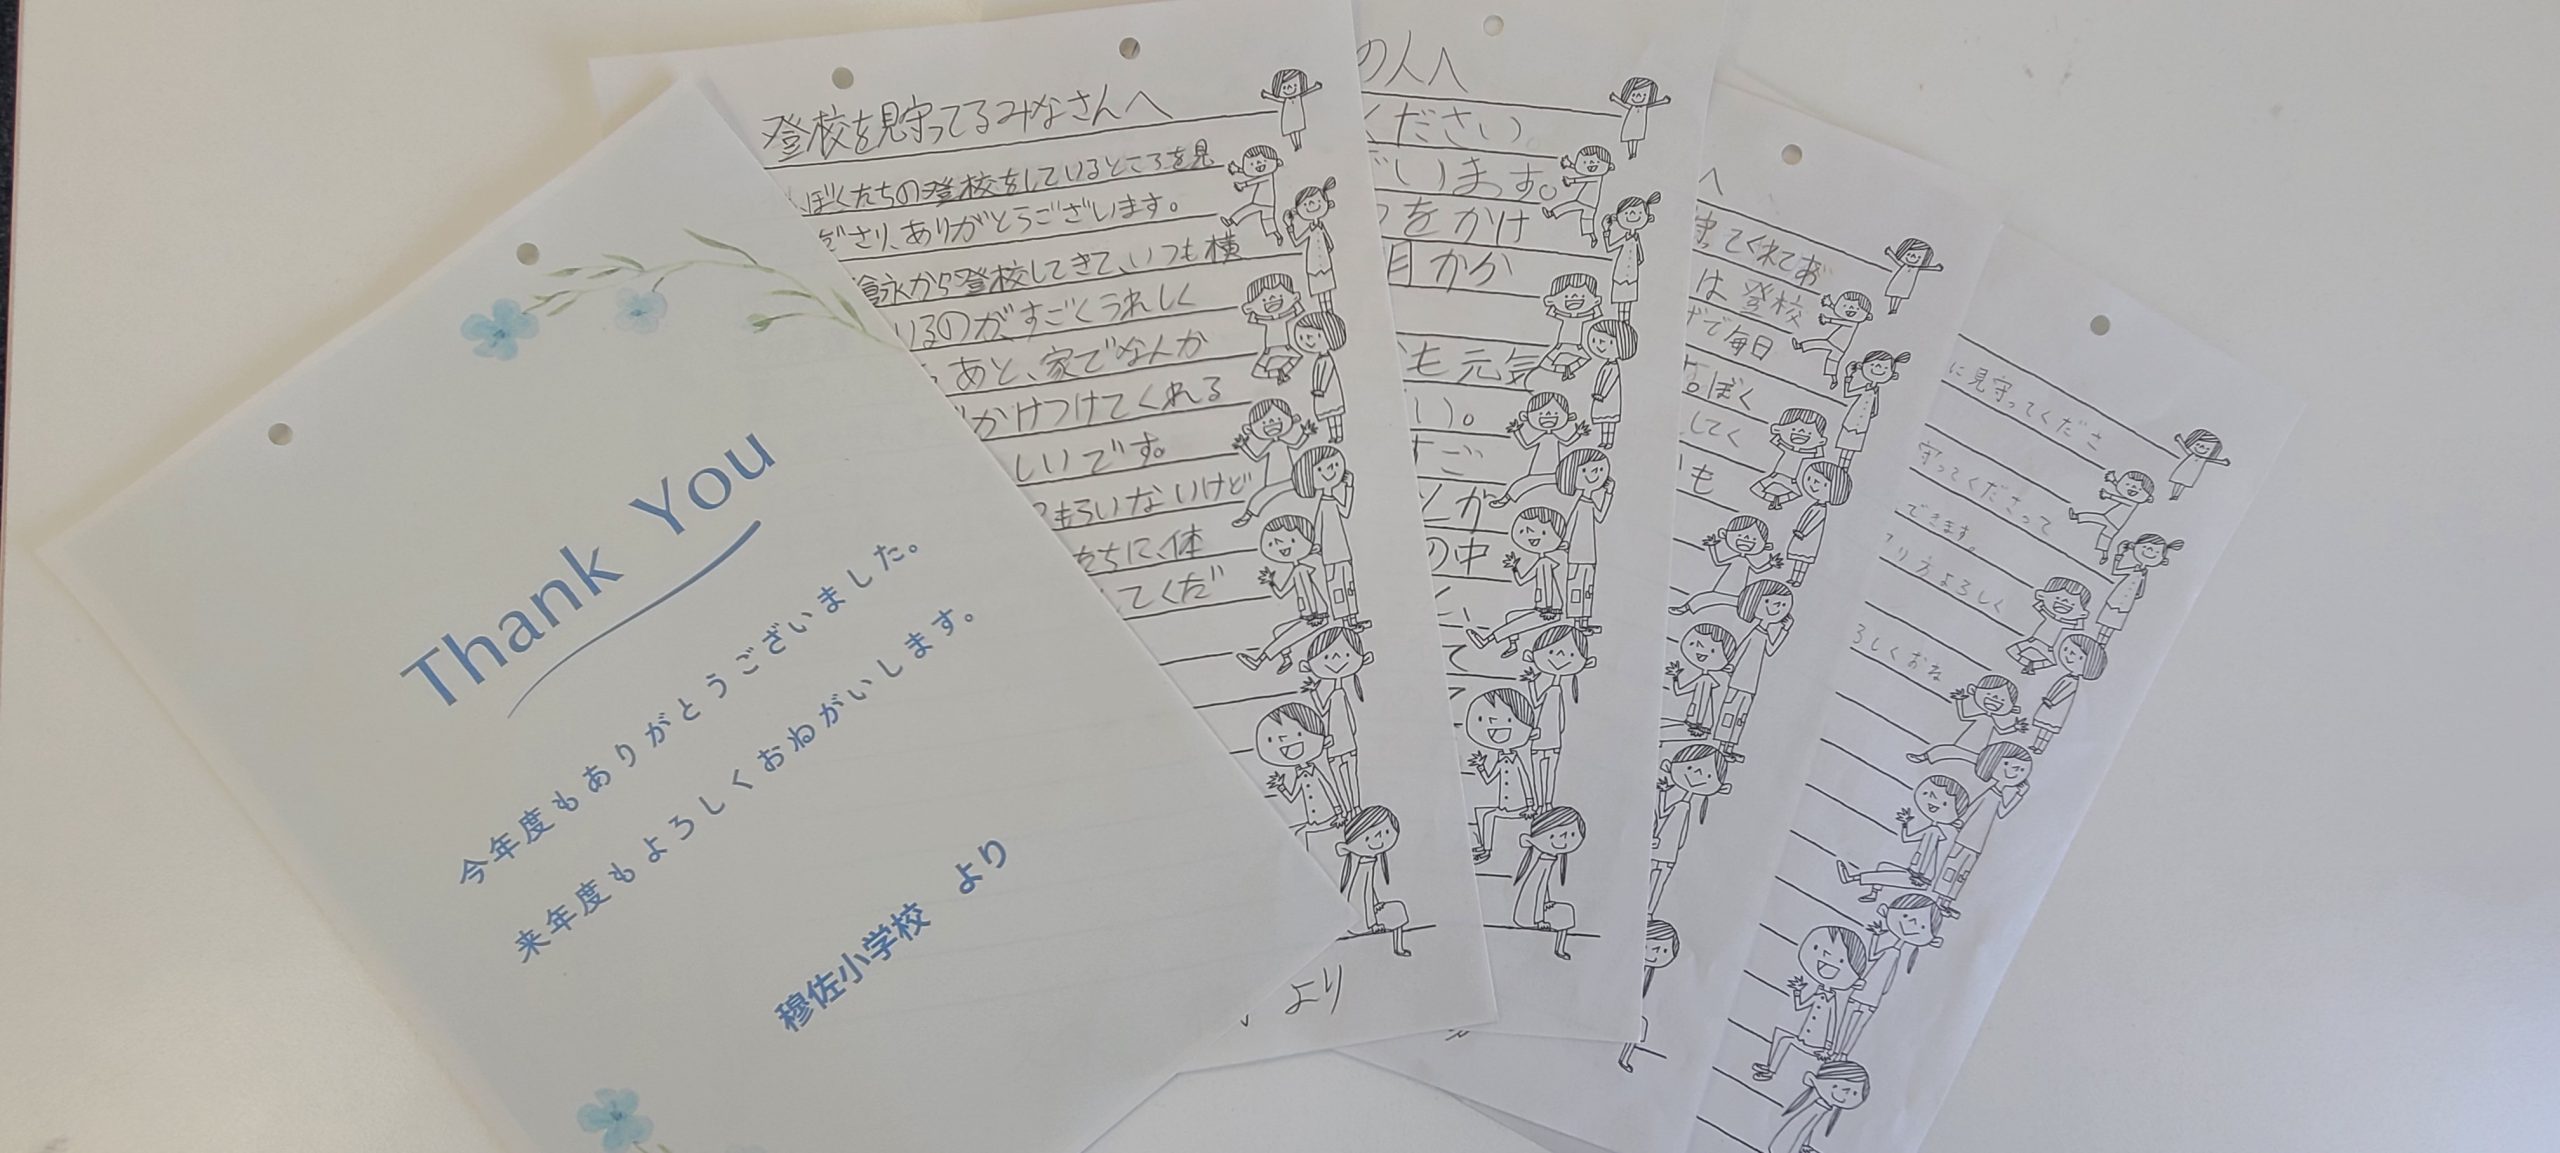 Thank You
今年度もありがとうございました。
来年度もよろしくおねがいします。
穆佐小学校 より
登校を見守ってるみなさんへ
ぼくたちの登校をしているところを見
ださり、ありがとうございます。
倉永から登校してきて、いつも横
いるのがすごくうれしく
あと、家でなんか
かけつけてくれる
しいです。
もういないけど
たちに、体
てくだ
より
の人へ
ください。
ざいます。
つをかけ
月から
も元気
い)。
すご
とか
の中
て
へ
守ってくれてお
は登校
げで毎日
す。ぼく
してく
も
に見守ってくださ
守ってくださって
できます。
り方よろしく
ろしくおね